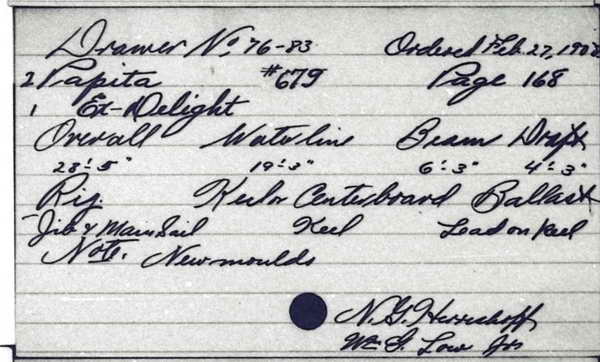 Drawer No 76-83 Ordered Feb. 27, 1908
2 Papita #679 Page 168
1 Ex-Delight
Overall Waterline Beam Draft
28'-5" 19'-3" 6'-3" 4'-3"
Rig. Keel or Centerboard Ballast
Jib & Main Sail Keel Lead on Keel
Note. New moulds
N. G. Herreshoff
Wm G. Low Jr